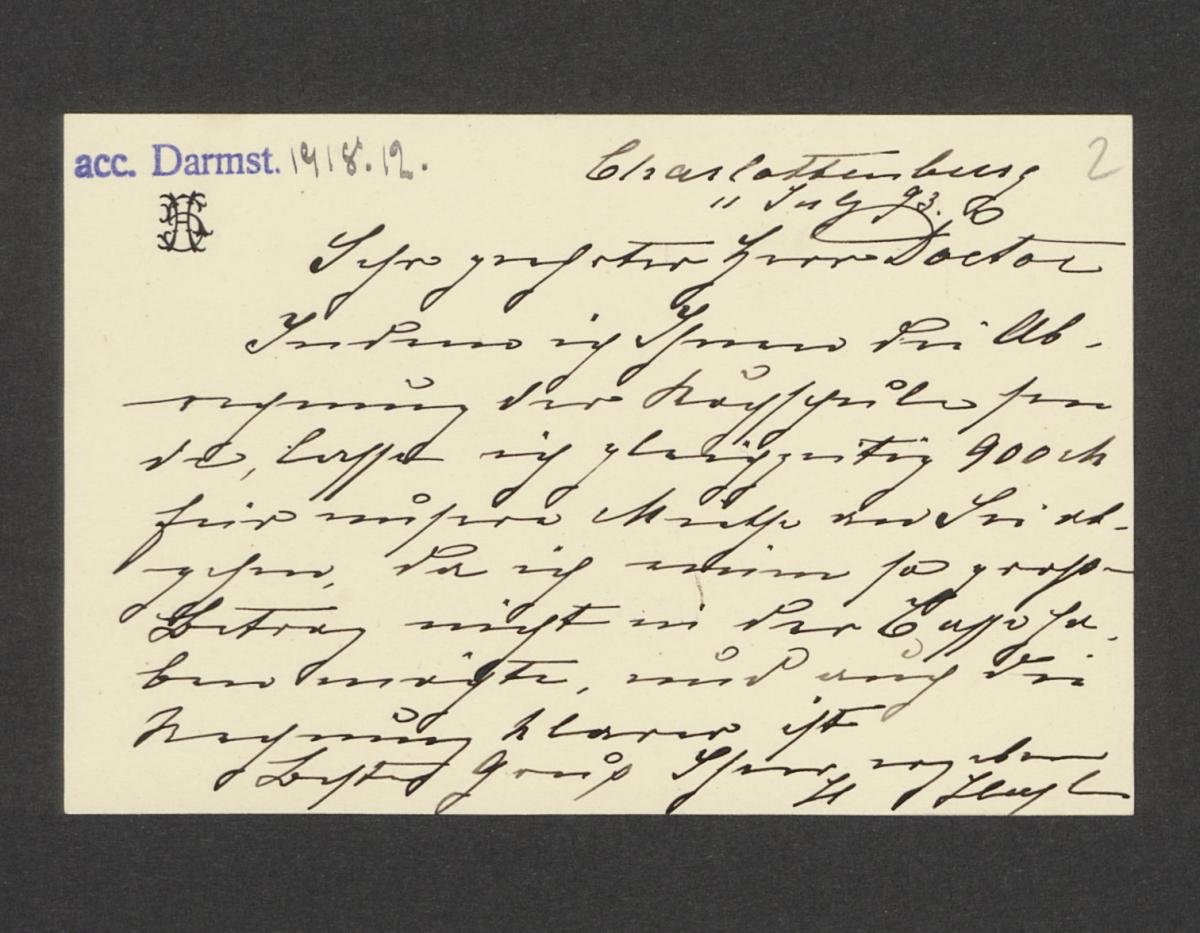 acc. Darmst. 1918.12.
2
Charlottenburg
11 July 93.
Sehr geehrter Herr Doctor
Indem ich Ihnen die Ab-
rechnung der Kochschule sen
de, lasse ich gleichzeitig 900 M
für unsere an Sie ab-
gehen, da ich einen so großen
Betrag nicht in der Casse ha-
ben möchte, und auch die
Rechnung klarer ist
Besten Gruß Ihr ergeben
H